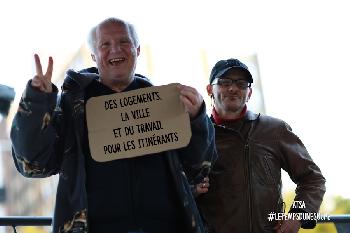 DES LOGEMENTS,
LA VILLE
ET DU TRAVAIL
POUR LES ITINÉRANTS
ATSA
#LETEMPSDUNESOUPE